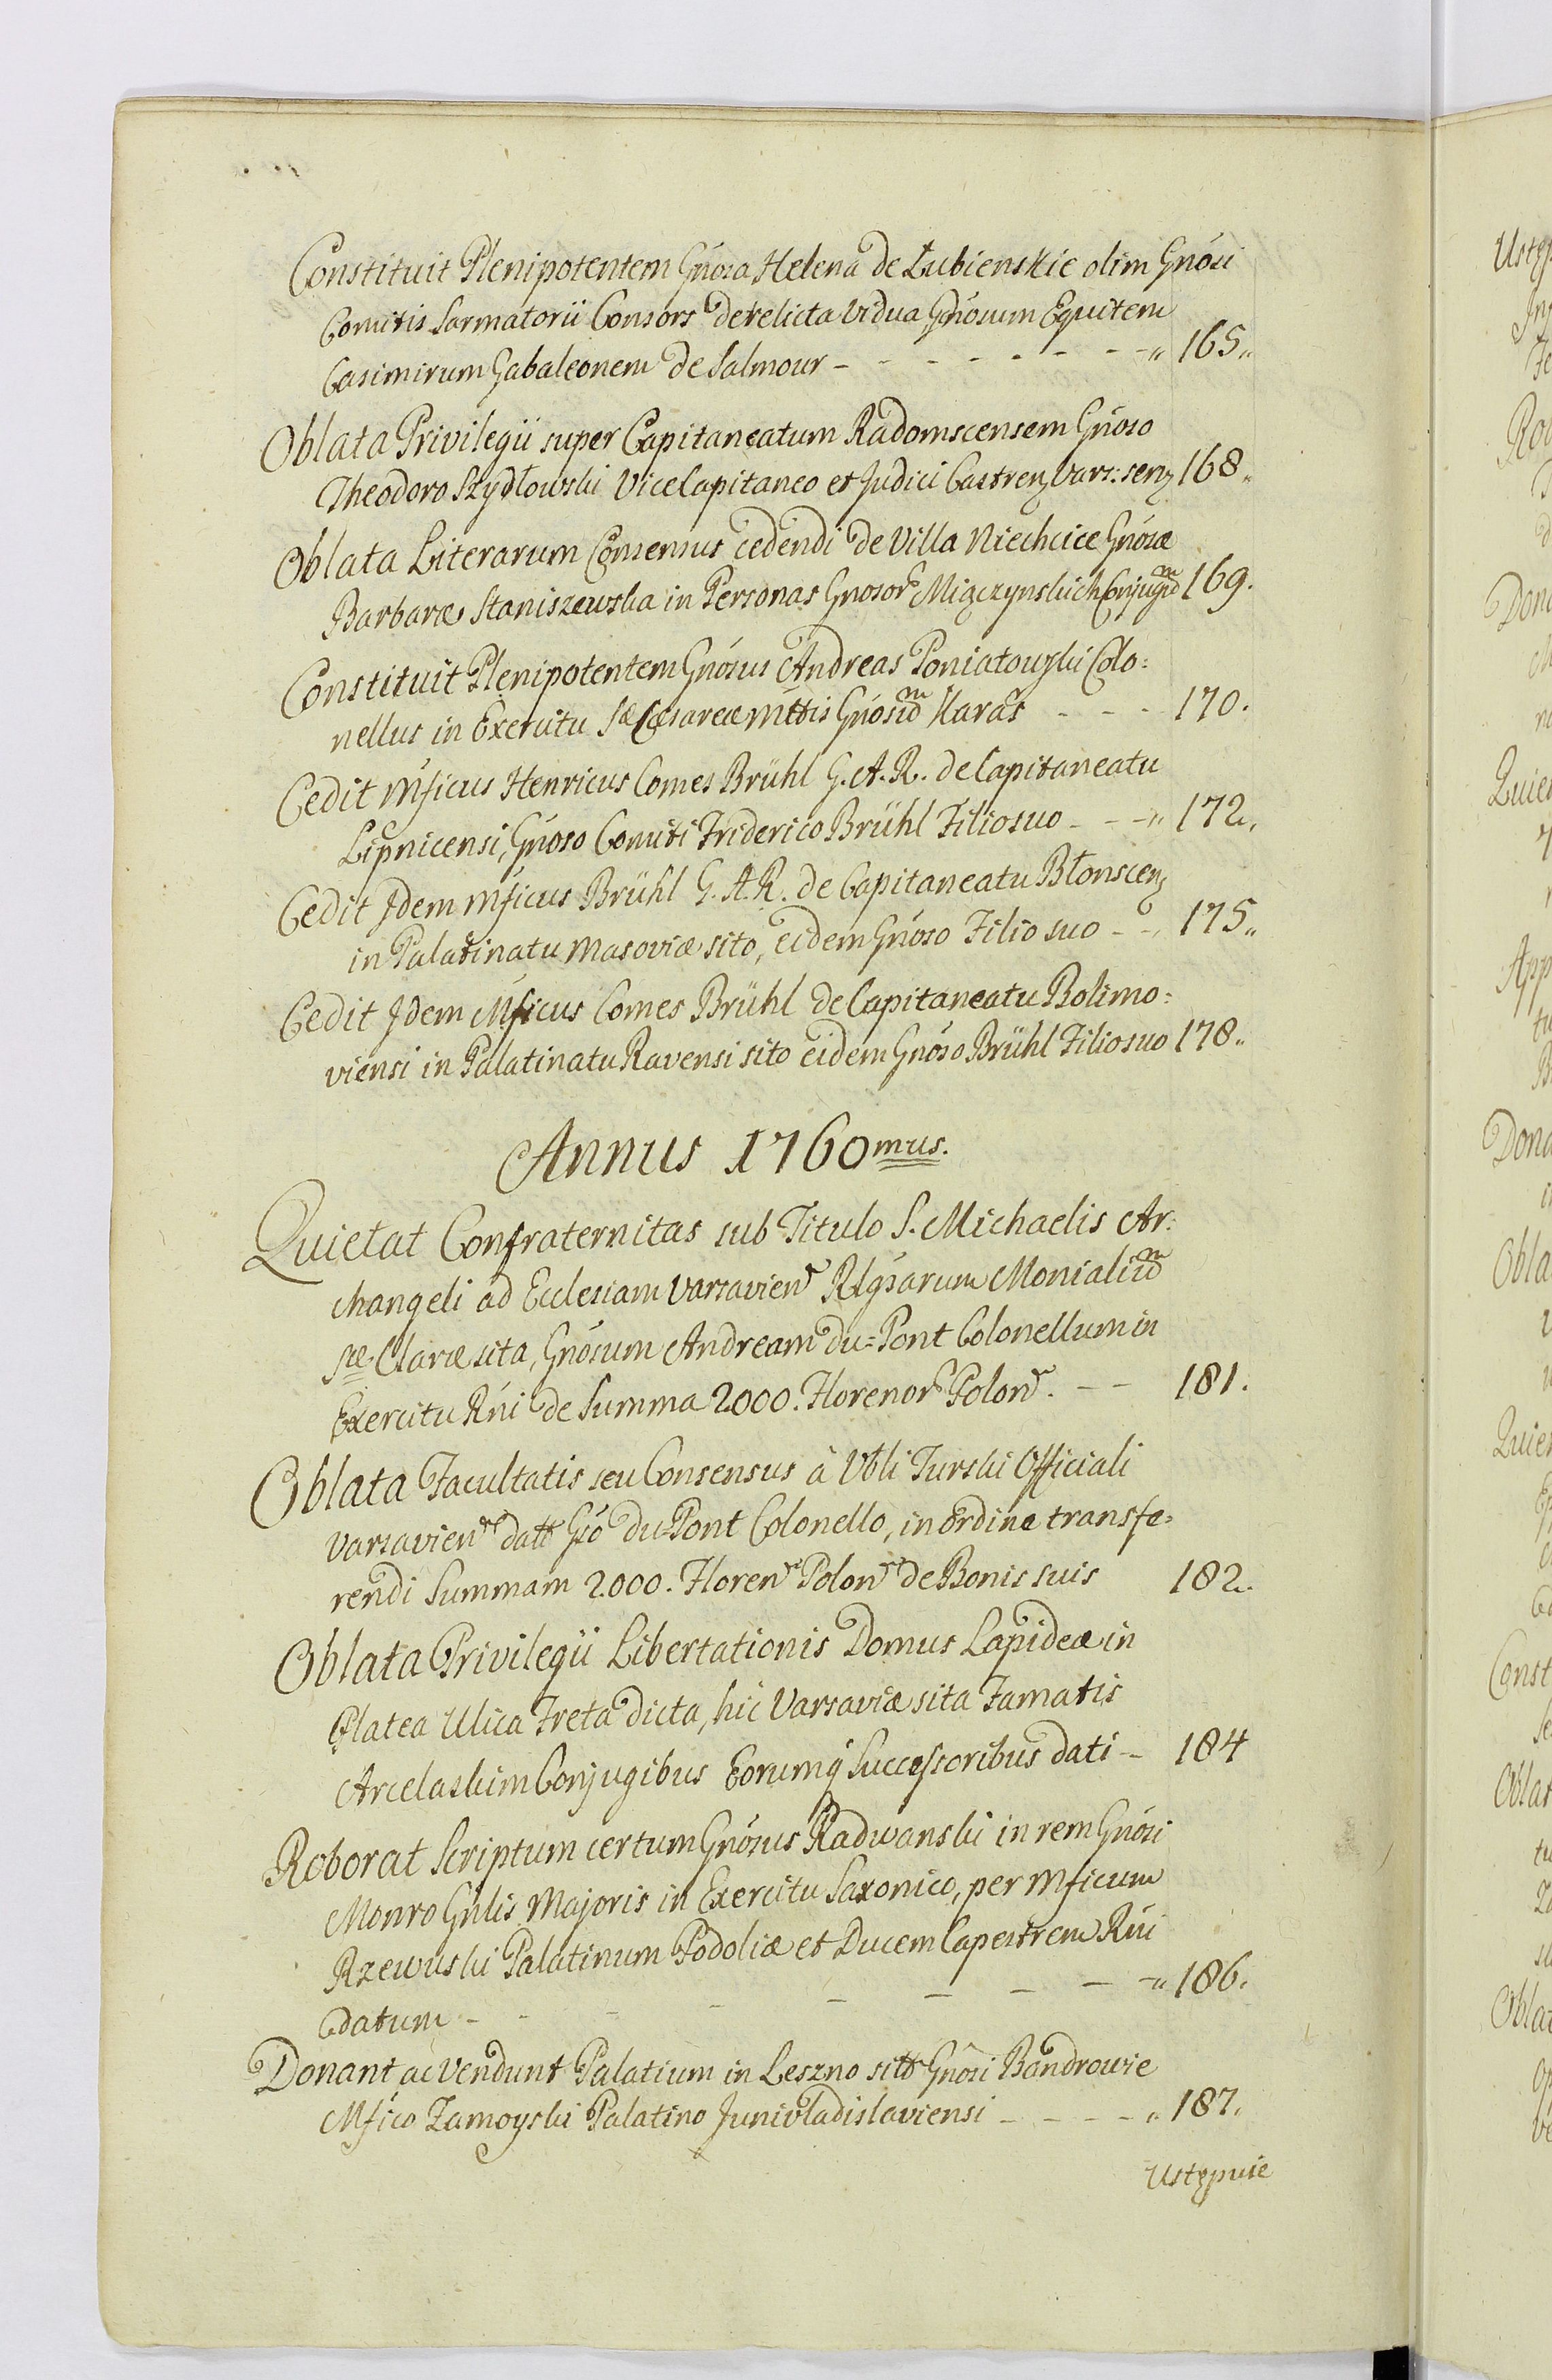 Constituit Plenipotentem Gnosa Helena de Łubienskie olim Gnosi
Comitis Sarmatorii Consors derelicta Vidua Gnosum Equitem
Casimirum Gabaleonem de Salmour - - - - - - - -„ 165„
Oblata Privilegii super Capitaneatum Radomscensem Gnoso
Theodoro Szydłowski Vice Capitaneo et Judici Castrenz Vars:senz 168„
Oblata Literarum Consensus cedendi de Villa Niechcice Gnosæ
Barbaræ Staniszewska in Personas Gnosor Miączynskich Conjugum 169.
Constituit Plenipotentem Gnosus Andreas Poniatowski Colo=
nellus in Exercitu Sæ Cæsareæ Mttis Gnosum Karaś - - - 170.
Cedit Mficus Henricus Comes Brühl G. A. R. de Capitaneatu
Lipnicensi, Gnoso Comiti Friderico Brühl Filio suo - - -„ 172.
Cedit Idem Mficus Brühl G. A. R. de Capitaneatu Błonscenz
in Palatinatu Masoviæ sito, eidem Gnoso Filio suo - - 175„
Cedit Idem Mficus Comes Brühl de Capitaneatu Bolimo=
viensi in Palatinatu Ravensi sito eidem Gnoso Brühl Filio suo 178„
Annus 1760mus.
Quietat Confraternitas sub Titulo S. Michaelis Ar=
changeli ad Ecclesiam Varsavien Rlgsarum Monialium
Sæ Claræ sita, Gnosum Andream du=Pont Colonellum in
Exercitu Rni de Summa 2000. Florenor Polon. - - 181.
Oblata Facultatis seu Consensus à Vbli Turski Officiali
Varsavien datt Gso du=Pont Colonello, in ordine transfe=
rendi Summam 2000. Floren Polon de Bonis suis 182.
Oblata Privilegii Libertationis Domus Lapideæ in
Platea Ulica Freta dicta, hic Varsaviæ sita Famatis
Arcelaskim Conjugibus Eorumq Successoribus dati - 184
Roborat Scriptum certum Gnosus Radwanski in rem Gnosi
Monro Gnlis Majoris in Exercitu Saxonico, per Mficum
Rzewuski Palatinum Podoliæ et Ducem Capestrem Rni
datum - - - - - - - -„ 186.
Donant ac Vendunt Palatium in Leszno sitt Gnosi Bandrowie
Mfico Zamoyski Palatino Junivladislaviensi - - - -„ 187.
Ustępuie